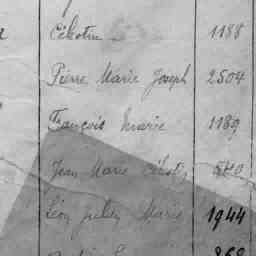 Célestin 1188
Pierre Marie Joseph 2504
François Marie 1189
Jean Marie 540
Léon Julien Marie 1944